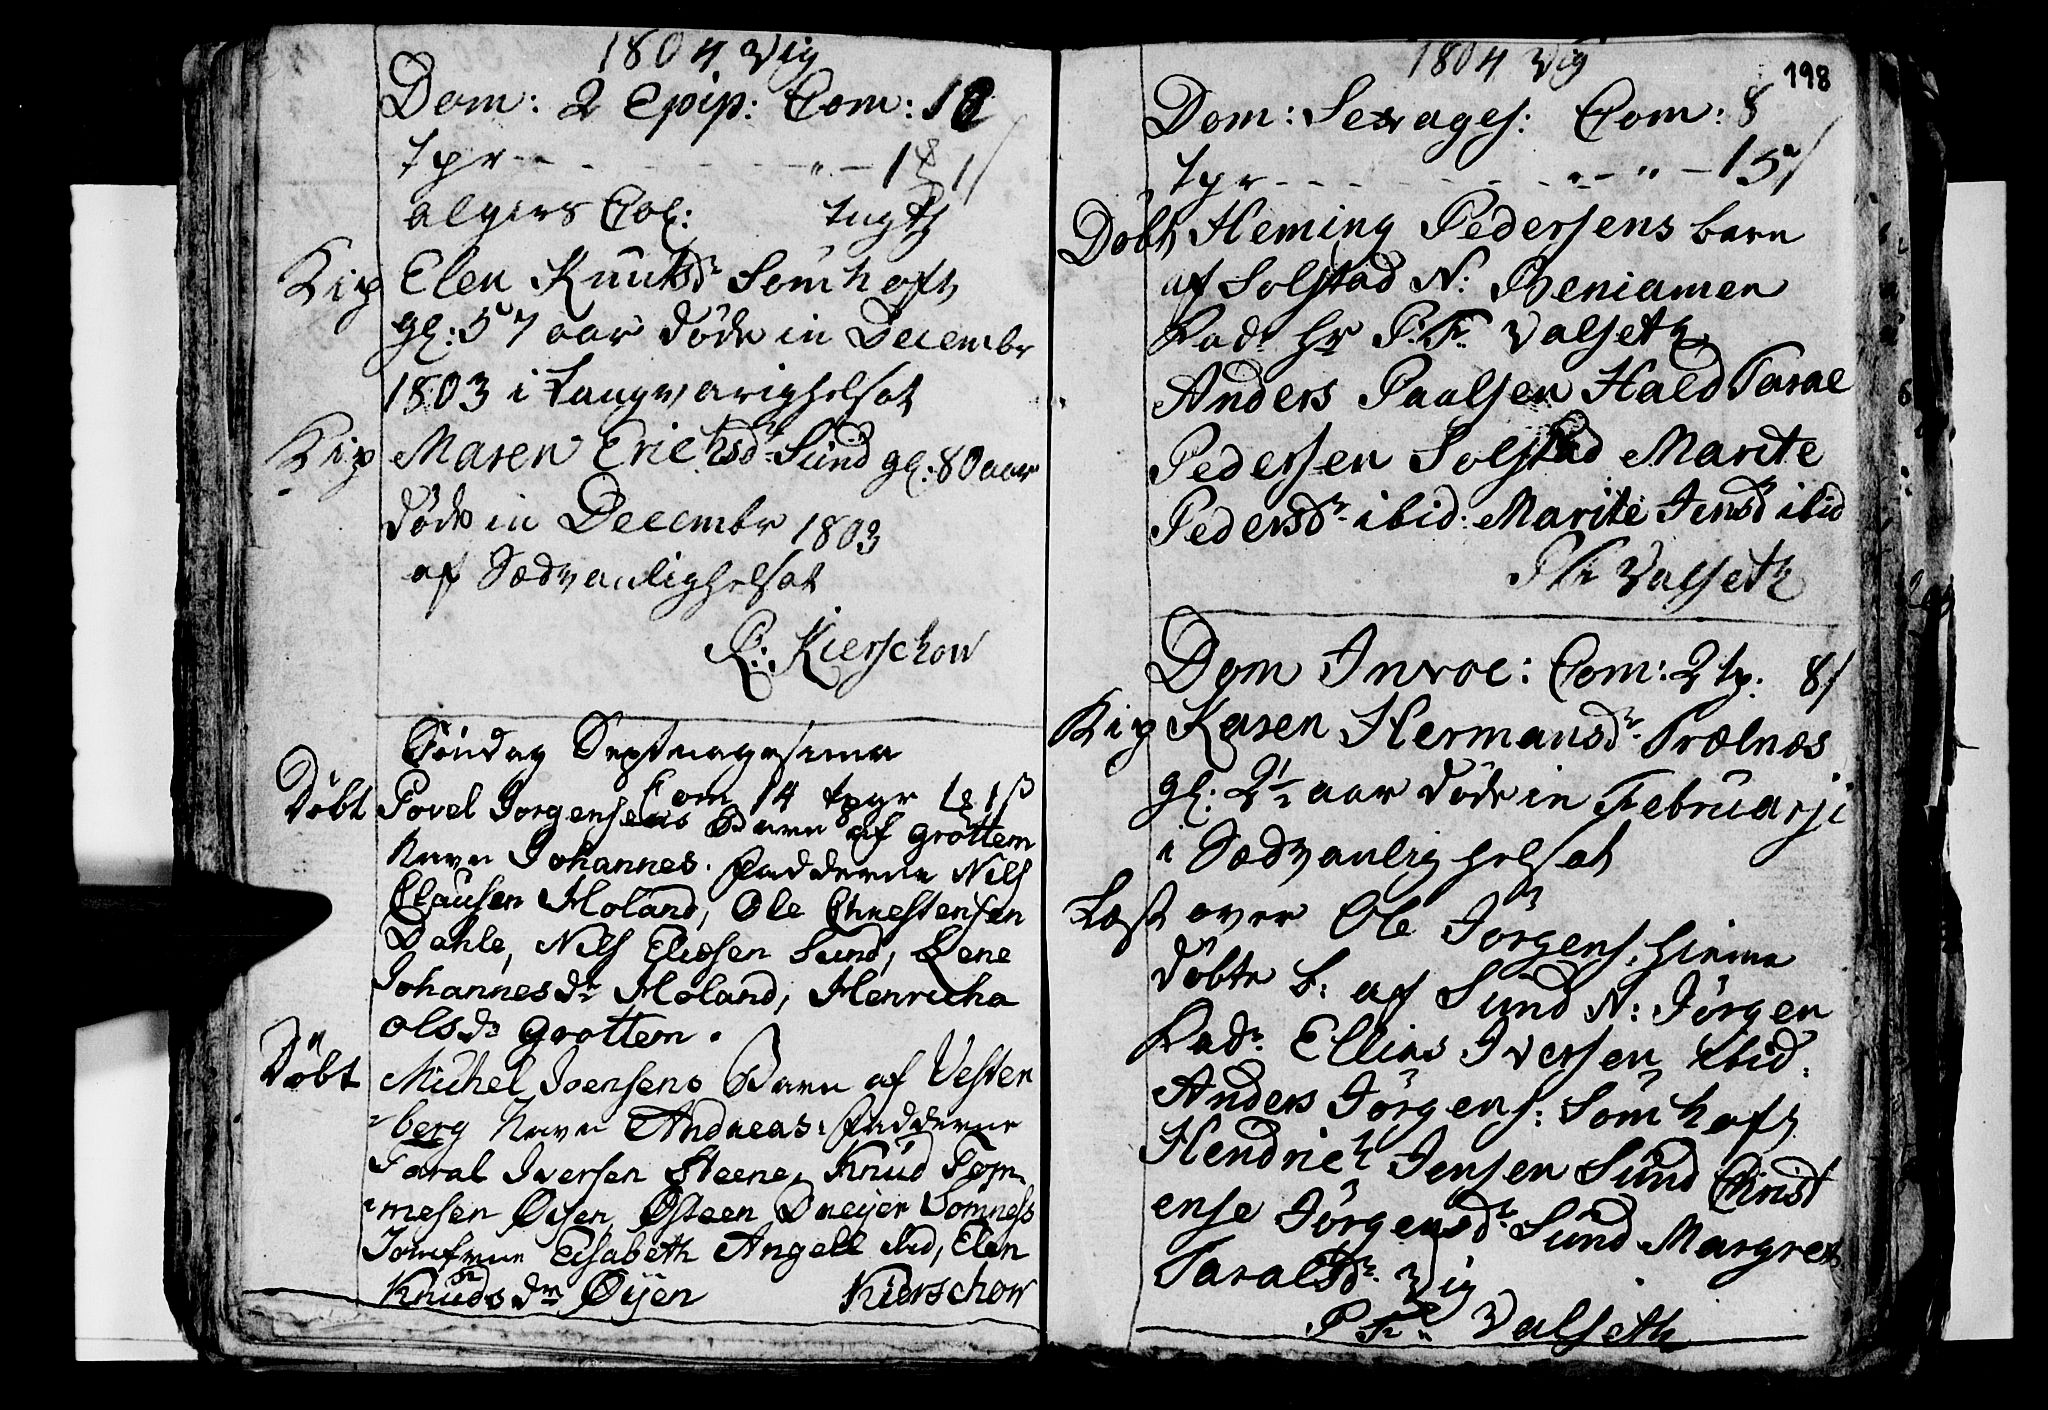 1804 Vig
Dom: 2 Epip: Com: 12
tpr
Kip Elen Knutsdr Somhoft
gl: 57 aar døde in Decembr
1803 i Langvarighelsot
Kip Maren Erichsdr Sund gl: 80 aar
døde in Decembr 1803
af Sædvanlighelsot
P: Kierschow
Søndag Septuagesima
Com 14 tpgr
Døbt Povel Jørgensens Barn af Grøttem
Navn Johannes. Fadderne Nils
Clausen Moland, Ole Christensen
Dahle, Nils Eliesen Sund, Lene
Johannesdr Moland, Henricha
Olsdr Grøttem.
Døbt Michel Joensens Barn af Vester
berg Navn Andreas. Fadderne
Taral Iversen Steene, Knud Tom
mesen Øysen, Østeen Dreyer Somness
Jomfrue Elisabeth Angell ibid, Elen
Knudsdr Øijen Kierschow
1804 Vig 198
Dom: Sexages: Com: 8
tpr 15
Døbt Heming Pedersens barn
af Solstad N: Beniamen
Fad: hr P: Fr: Valseth
Anders Paalsen Hald Taral
Pedersen Solstad Marite
Pedersdr ibid: Marite Jensdr ibid
PFr Valseth
Dom Invoc: Com: 2 tp: 8
Kip Karen Hermansdr Trælnæs
gl: 2½ aar døde in Februarji
i Sædvanlighelsot
Læst over Ole Jørgens: hiema
døbte b: af Sund N: Jørgen
Fadr Ellias Iversen ibid:
Anders Jørgens: Somhoft
Hendrich Jensen Sund Christ
ense Jørgensdr Sund Margret
Taralsdr Vig
P Fr: Valseth